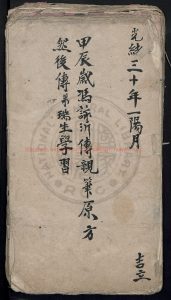 光緒三十年一陽月
甲辰歲馮詠沂傳親筆原方
然後傳弟瑞生學習
吉立
NATIONAL CENTRAL LIBRARY